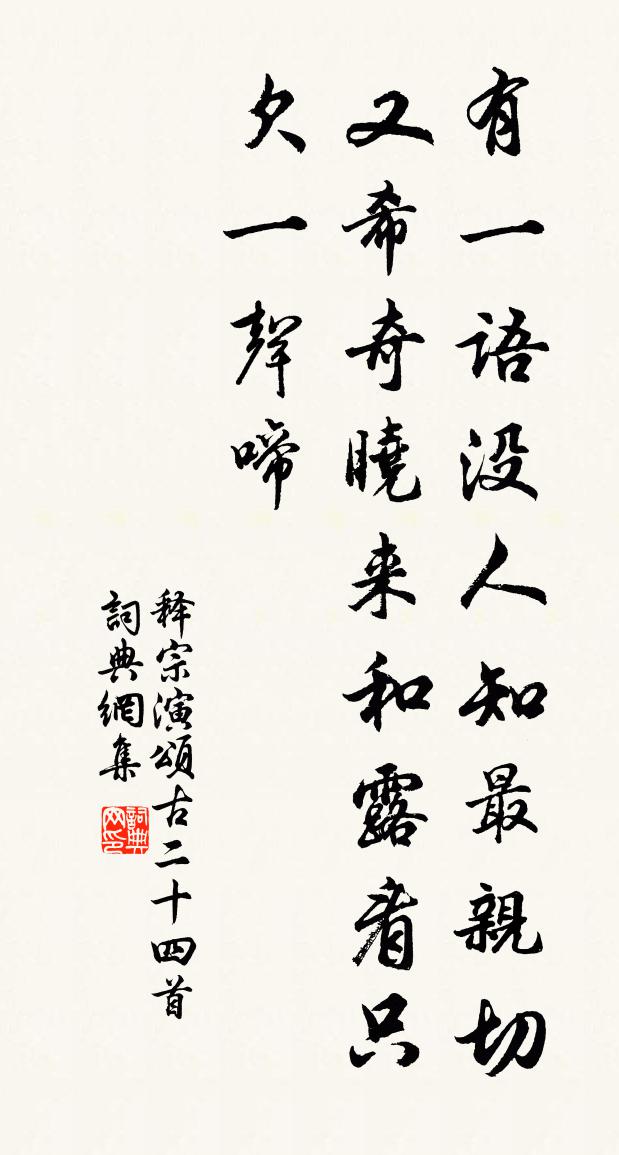 有一語没人知最親切
又希奇曉来和露看只
欠一聲啼
释宗演頌古二十四首
詞典網集
詞典网印